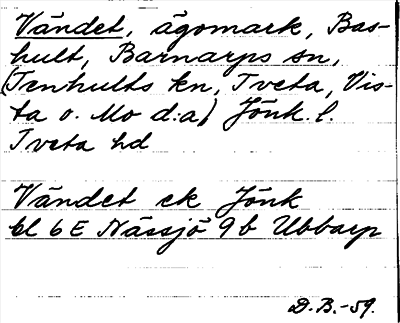 Vändet, ägomark, Bas-
hult, Barnarps sn,
(Tenhults kn, Tveta, Vis-
ta o. Mo d:a) Jönk. l.
Tveta hd
Vändet ek Jönk
bl 6E Nässjö 9b Ubbarp
D.B.-59.